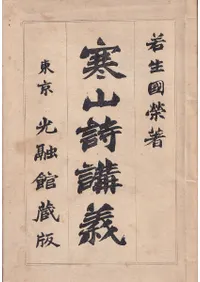 若生國榮著
寒山詩講義
東京 光融館藏版